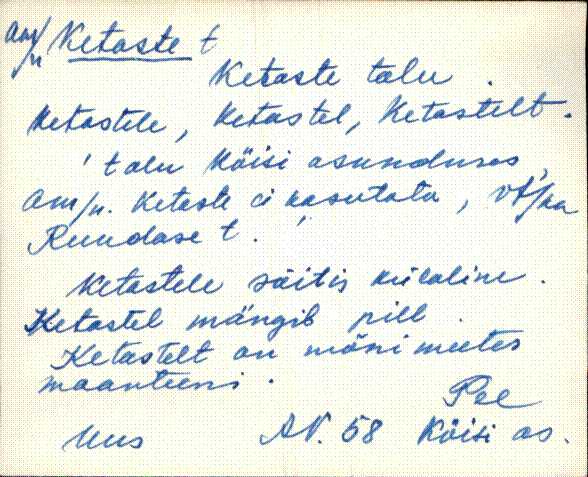 am/n Ketaste t
Ketaste talu.
Ketastele, Ketastel, Ketastelt.
'talu Köisi asunduses,
am/n. Ketaste ei kasutata, vt/ka
Ruudase t.
Ketastele sõitis külaline.
Ketastel mängib pill.
Ketastelt on mõni meetes
maanteeni.
Pee
Uus AV. 58 Köisi as.